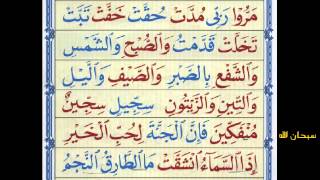 مَرُّوا رَبِّي مُدَّتْ حُقَّتْ خَفَّتْ تَبَّتْ
تَخَلَّتْ قَدَّمَتْ وَالصُّبْحِ وَالشَّمْسِ
وَالشَّفْعِ بِالصَّبْرِ وَالصَّيْفِ وَالَّيْلِ
وَالتِّينِ وَالزَّيْتُونِ سِجِّيلٍ سِجِّينٌ
مُنْفَكِّينَ فَإِنَّ الْجَنَّةَ لِحُبِّ الْخَيْرِ
إِذَا السَّمَاءُ انْشَقَّتْ مَا الطَّارِقُ النَّجْمُ
سبحان الله